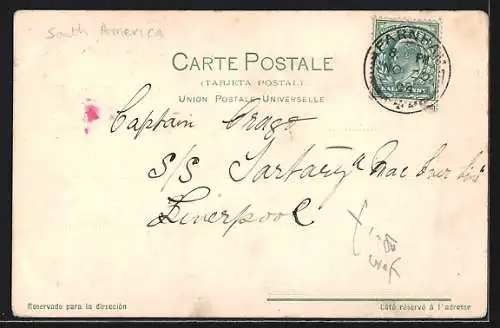 South America
CARTE POSTALE
(TARJETA POSTAL)
UNION POSTALE UNIVERSELLE
FARNHAM
Captain Crago
S/S Tartary Mac Iver
Liverpool
Reservado para la dirección
Côté réservé à l'adresse